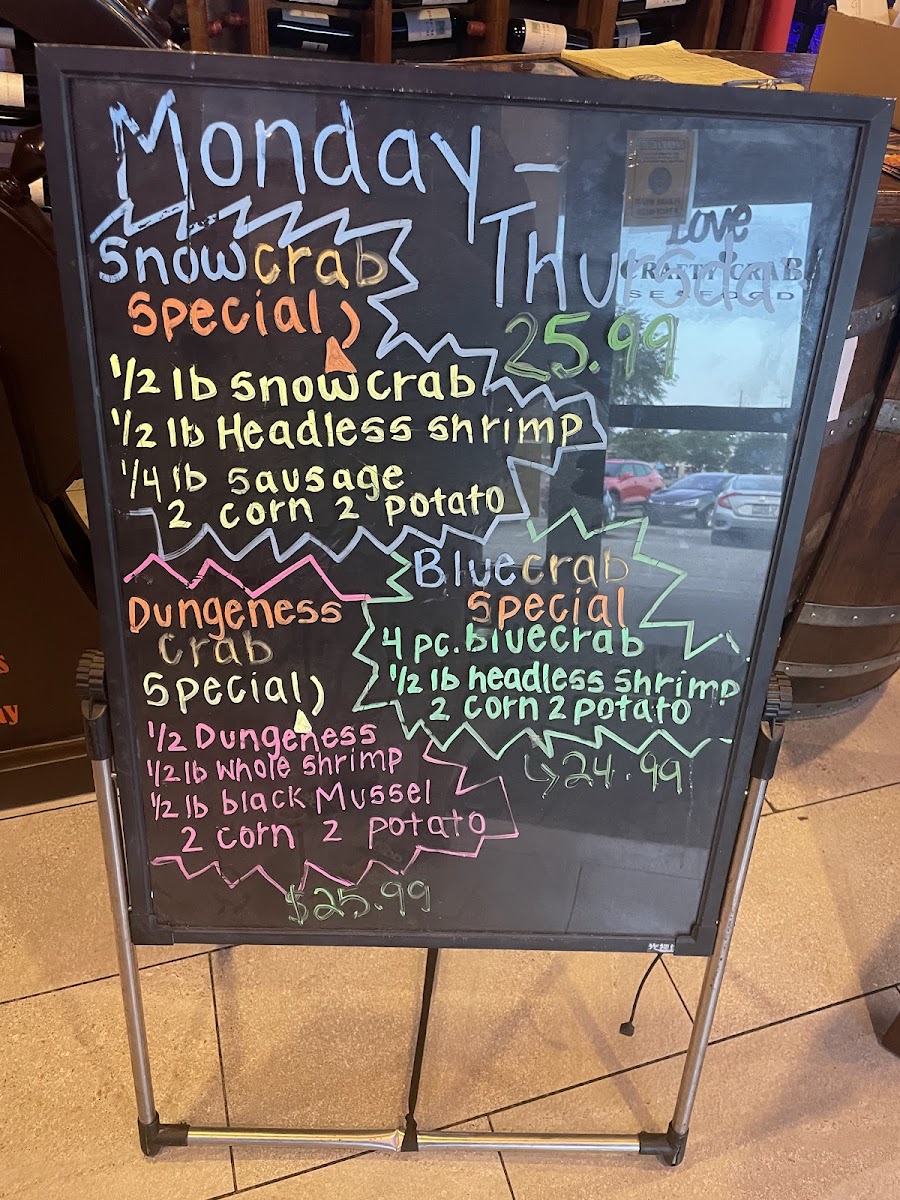 Monday -
Thursday
Snowcrab
Special
25.99
1/2 lb snowcrab
1/2 lb Headless shrimp
1/4 lb sausage
2 corn 2 potato
Bluecrab
Special
4 pc. bluecrab
1/2 lb headless shrimp
2 corn 2 potato
24.99
Dungeness
Crab
Special
1/2 Dungeness
1/2 lb whole shrimp
1/2 lb black Mussel
2 corn 2 potato
$25.99
Love
CRAFTY CRAB
SEAFOOD